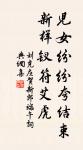 兒女紛紛夸結束
新樣釵符艾虎
刘克庄賀新郎端午詞
典烱書